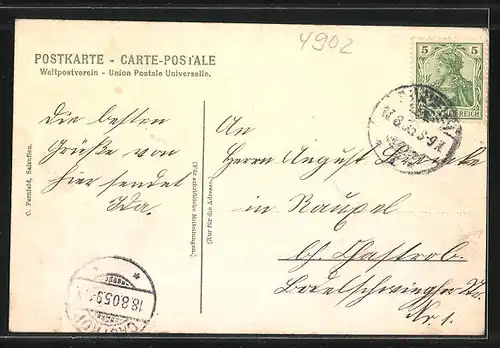 4902
POSTKARTE - CARTE-POSTALE
Weltpostverein - Union Postale Universelle.
5 5
REICH
Die besten
Grüße von
hier sendet
Ida.
C. Pernfeld, Salzuflen.
(Für schriftliche Mitteilungen.)
(Nur für die Adresse)
An
Herrn August
in Rauxel
bh. Castrop.
Nr. 1.
18.8.05.9-
CASTROP